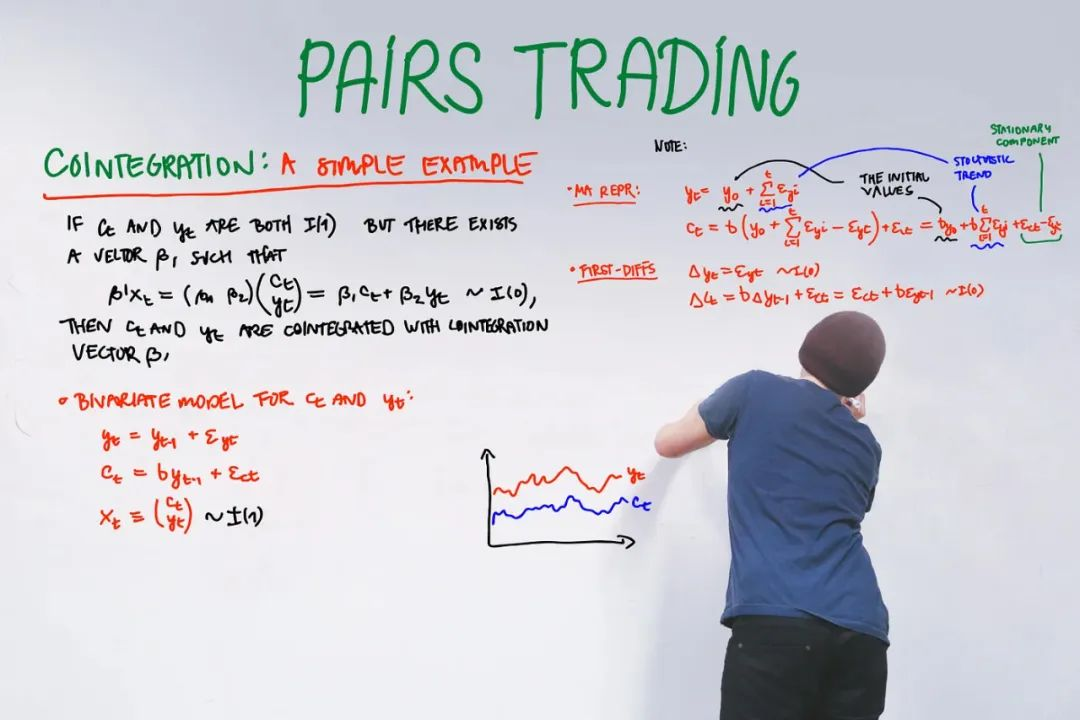 PAIRS TRADING
COINTEGRATION: A SIMPLE EXAMPLE
IF Ct AND yt ARE BOTH I(1) BUT THERE EXISTS
A VECTOR β, SUCH THAT
β'Xt = (β1 β2)(Ct yt) = β1Ct + β2yt ~ I(0),
THEN Ct AND yt ARE COINTEGRATED WITH COINTEGRATION
VECTOR β,
• BIVARIATE MODEL FOR Ct AND yt:
yt = yt-1 + εyt
Ct = byt-1 + εct
Xt ≡ (Ct yt) ~ I(1)
yt
Ct
NOTE:
STATIONARY
COMPONENT
STOCHASTIC
TREND
THE INITIAL
VALUES
• MA REPR: yt = y0 + Σ(i=1, t) εyi
Ct = b(y0 + Σ(i=1, t) εyi - εyt) + εct = by0 + bΣ(i=1, t) εyi + εct - εyt
• FIRST-DIFFS Δyt = εyt ~ I(0)
ΔCt = bΔyt-1 + εct = εct + bεyt-1 ~ I(0)